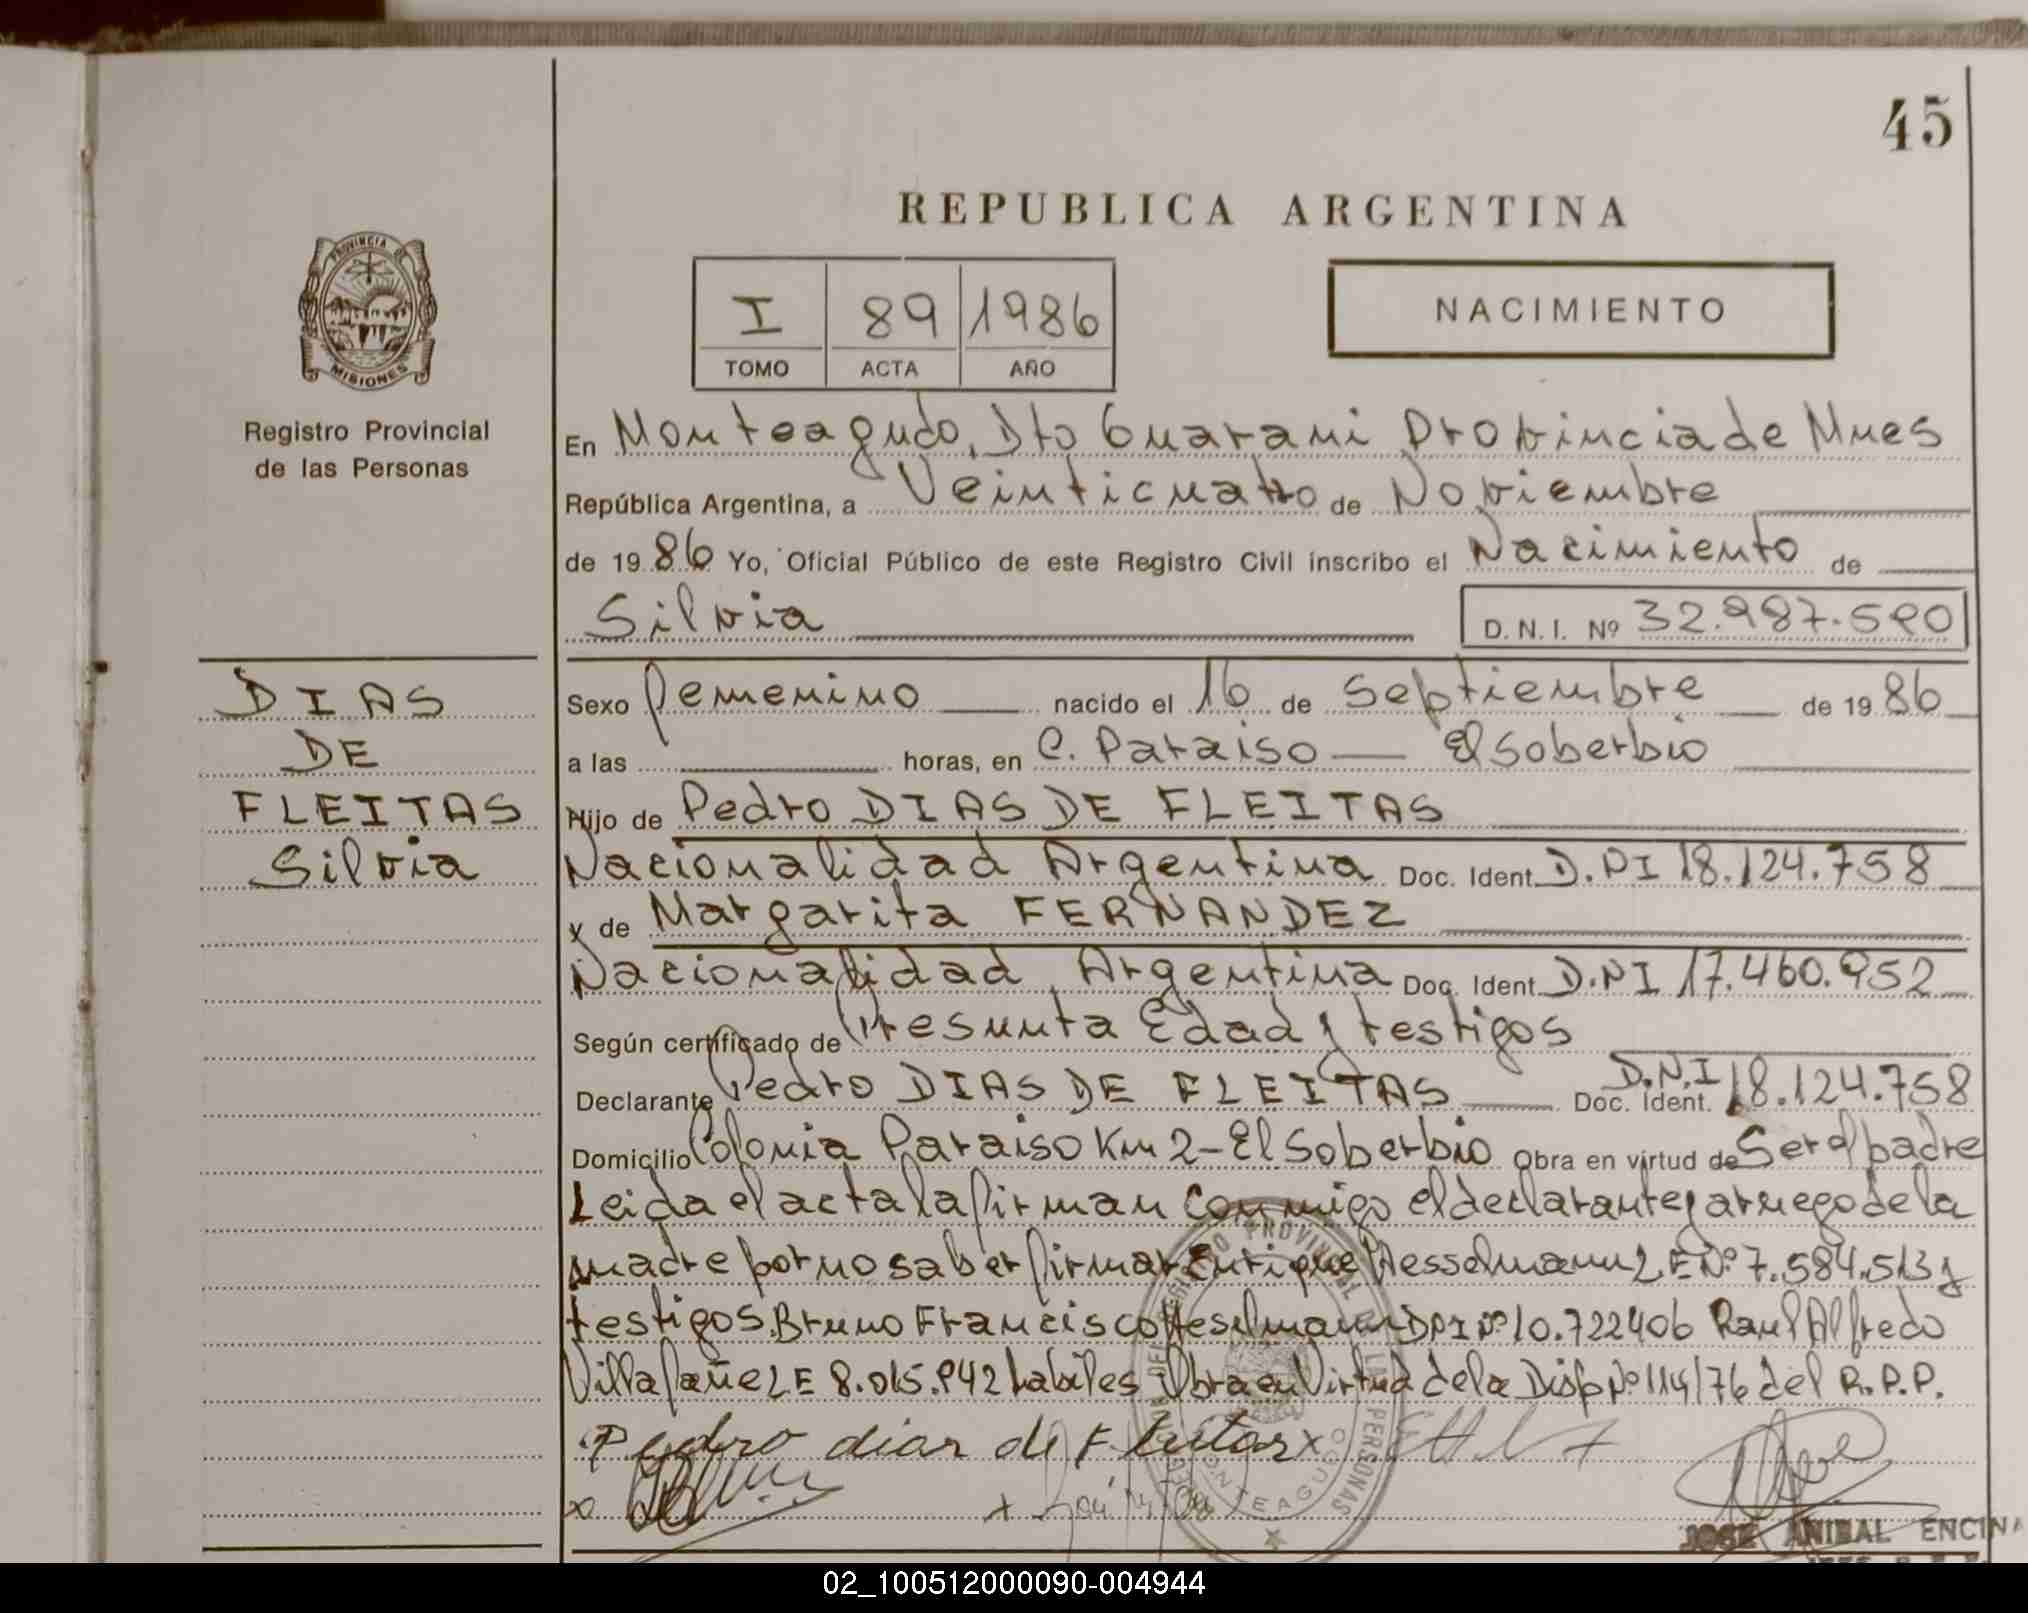 45
REPUBLICA ARGENTINA
PROVINCIA DE
MISIONES
Registro Provincial
de las Personas
I 89 1986
TOMO ACTA AÑO
NACIMIENTO
En Monteagudo, Dto Guarani Provincia de Mnes
República Argentina, a Veinticuatro de Noviembre
de 1986 Yo, Oficial Público de este Registro Civil inscribo el Nacimiento de
Silvia D. N. I. Nº 32.987.590
DIAS
DE
FLEITAS
Silvia
Sexo femenino nacido el 16 de Septiembre de 1986
a las horas, en C. Paraiso — El Soberbio
Hijo de Pedro DIAS DE FLEITAS
Nacionalidad Argentina Doc. Ident. D.NI 18.124.758
y de Margarita FERNANDEZ
Nacionalidad Argentina Doc. Ident. D.NI 17.460.952
Según certificado de Presunta Edad y testigos
Declarante Pedro DIAS DE FLEITAS Doc. Ident. D.N.I 18.124.758
Domicilio Colonia Paraiso Km 2-El Soberbio Obra en virtud de Ser el padre
Leida el acta la firman conmigo el declarante y a ruego de la
madre por no saber firmar Enrique Hesselmann L E Nº 7.584.513 y
testigos Bruno Francisco Heselmann DNI Nº 10.722406 Raul Alfredo
Villafañe L E 8.015.942 habiles Obra en Virtud de la Disp Nº 114/76 del R.P.P.
Pedro dias de Fleitas x
x
x
MONTEAGUDO
JOSE ANIBAL ENCINA
02_100512000090-004944